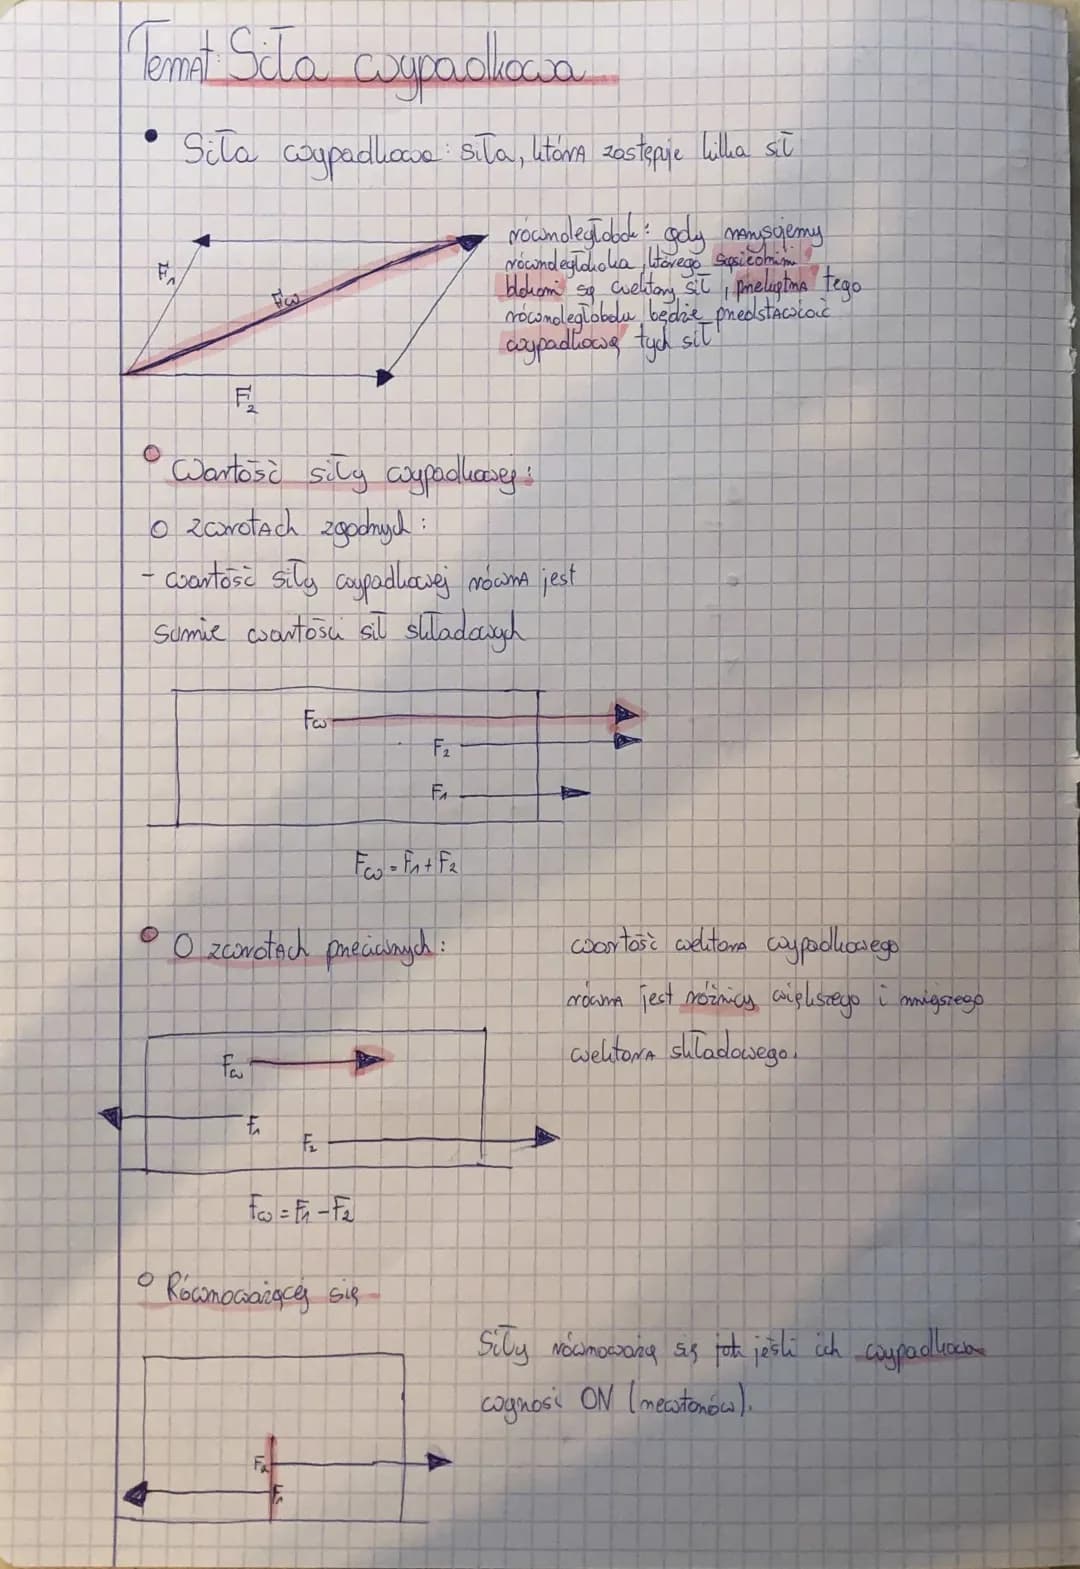 Temat: Siła wypadkowa
• Siła wypadkowa: siła, która zastępuje kilka sił
równoległobok: gdy narysujemy
równoległoboka, którego sąsiednimi
bokami są wektory sił, przekątna tego
równoległoboku będzie przedstawiać
wypadkową tych sił
F1
Fw
F2
Wartość siły wypadkowej:
O zwrotach zgodnych:
- wartość siły wypadkowej równa jest
sumie wartości sił składowych
Fw
F2
F1
Fw = F1 + F2
O zwrotach przeciwnych:
wartość wektora wypadkowego
równa jest różnicy większego i mniejszego
wektora składowego.
Fw
F1
F2
Fw = F1 - F2
Równoważącej się
Siły równoważą się jak jeśli ich wypadkowa
wynosi 0N (newtonów).
F2
F1